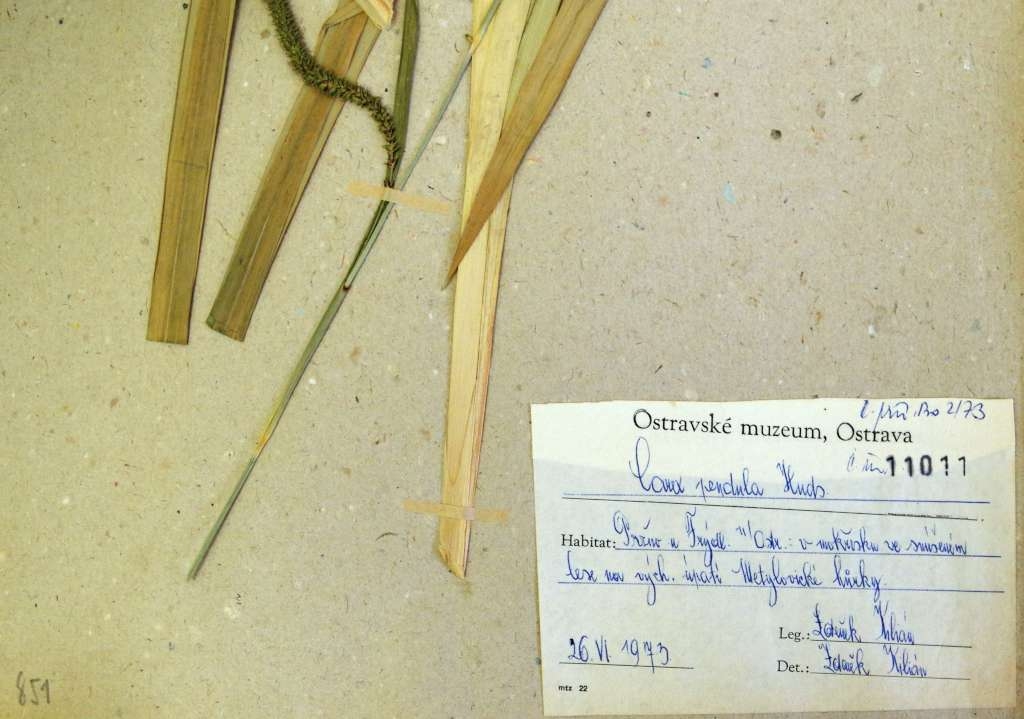 č. přír. Bo 2/73
Ostravské muzeum, Ostrava
č. in. 11011
Carex pendula Huds.
Habitat: Pržno u Frýdl. n/Ostr.: v mokřisku ve smíšeném
lese na vých. úpatí Metylovické hůrky.
Leg.: Zdeněk Kilián
26. VI. 1973
Det.: Zdeněk Kilián
mtz 22
851